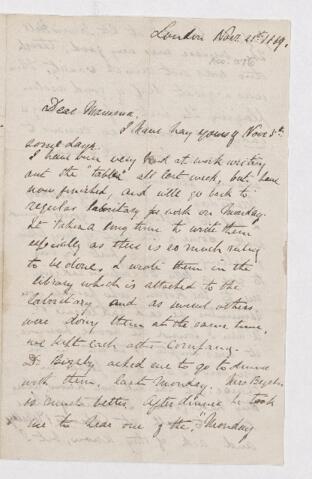 London Nov. 21st 1869.
Dear Mamma,
I have had yours of Nov 5th
some days.
I have been very hard at work writing
out the "tables" all last week, but have
now finished, and will go back to
regular laboritory work on Monday.
It takes a long time to write them
especially as there is so much ruling
to be done. I wrote them in the
library which is attached to the
laboritory and as several others
were doing them at the same time,
we kept each other company.
Dr. asked me to go to dinner
with them, last Monday. Mrs
is much better. After dinner he took
me to hear one of the, "Monday